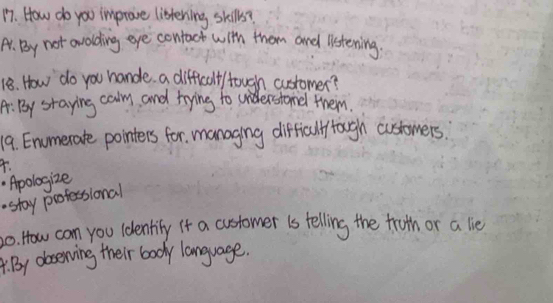 17. How do you improve listening skills?
A. By not avoiding eye contact with them and listening.
18. How do you hande a difficult/tough customer?
A: By staying calm, and trying to understand them.
19. Enumerate pointers for managing difficult/tough customers.
A.
• Apologize
• stay professional
20. How can you identify if a customer is telling the truth or a lie
A. By observing their body language.